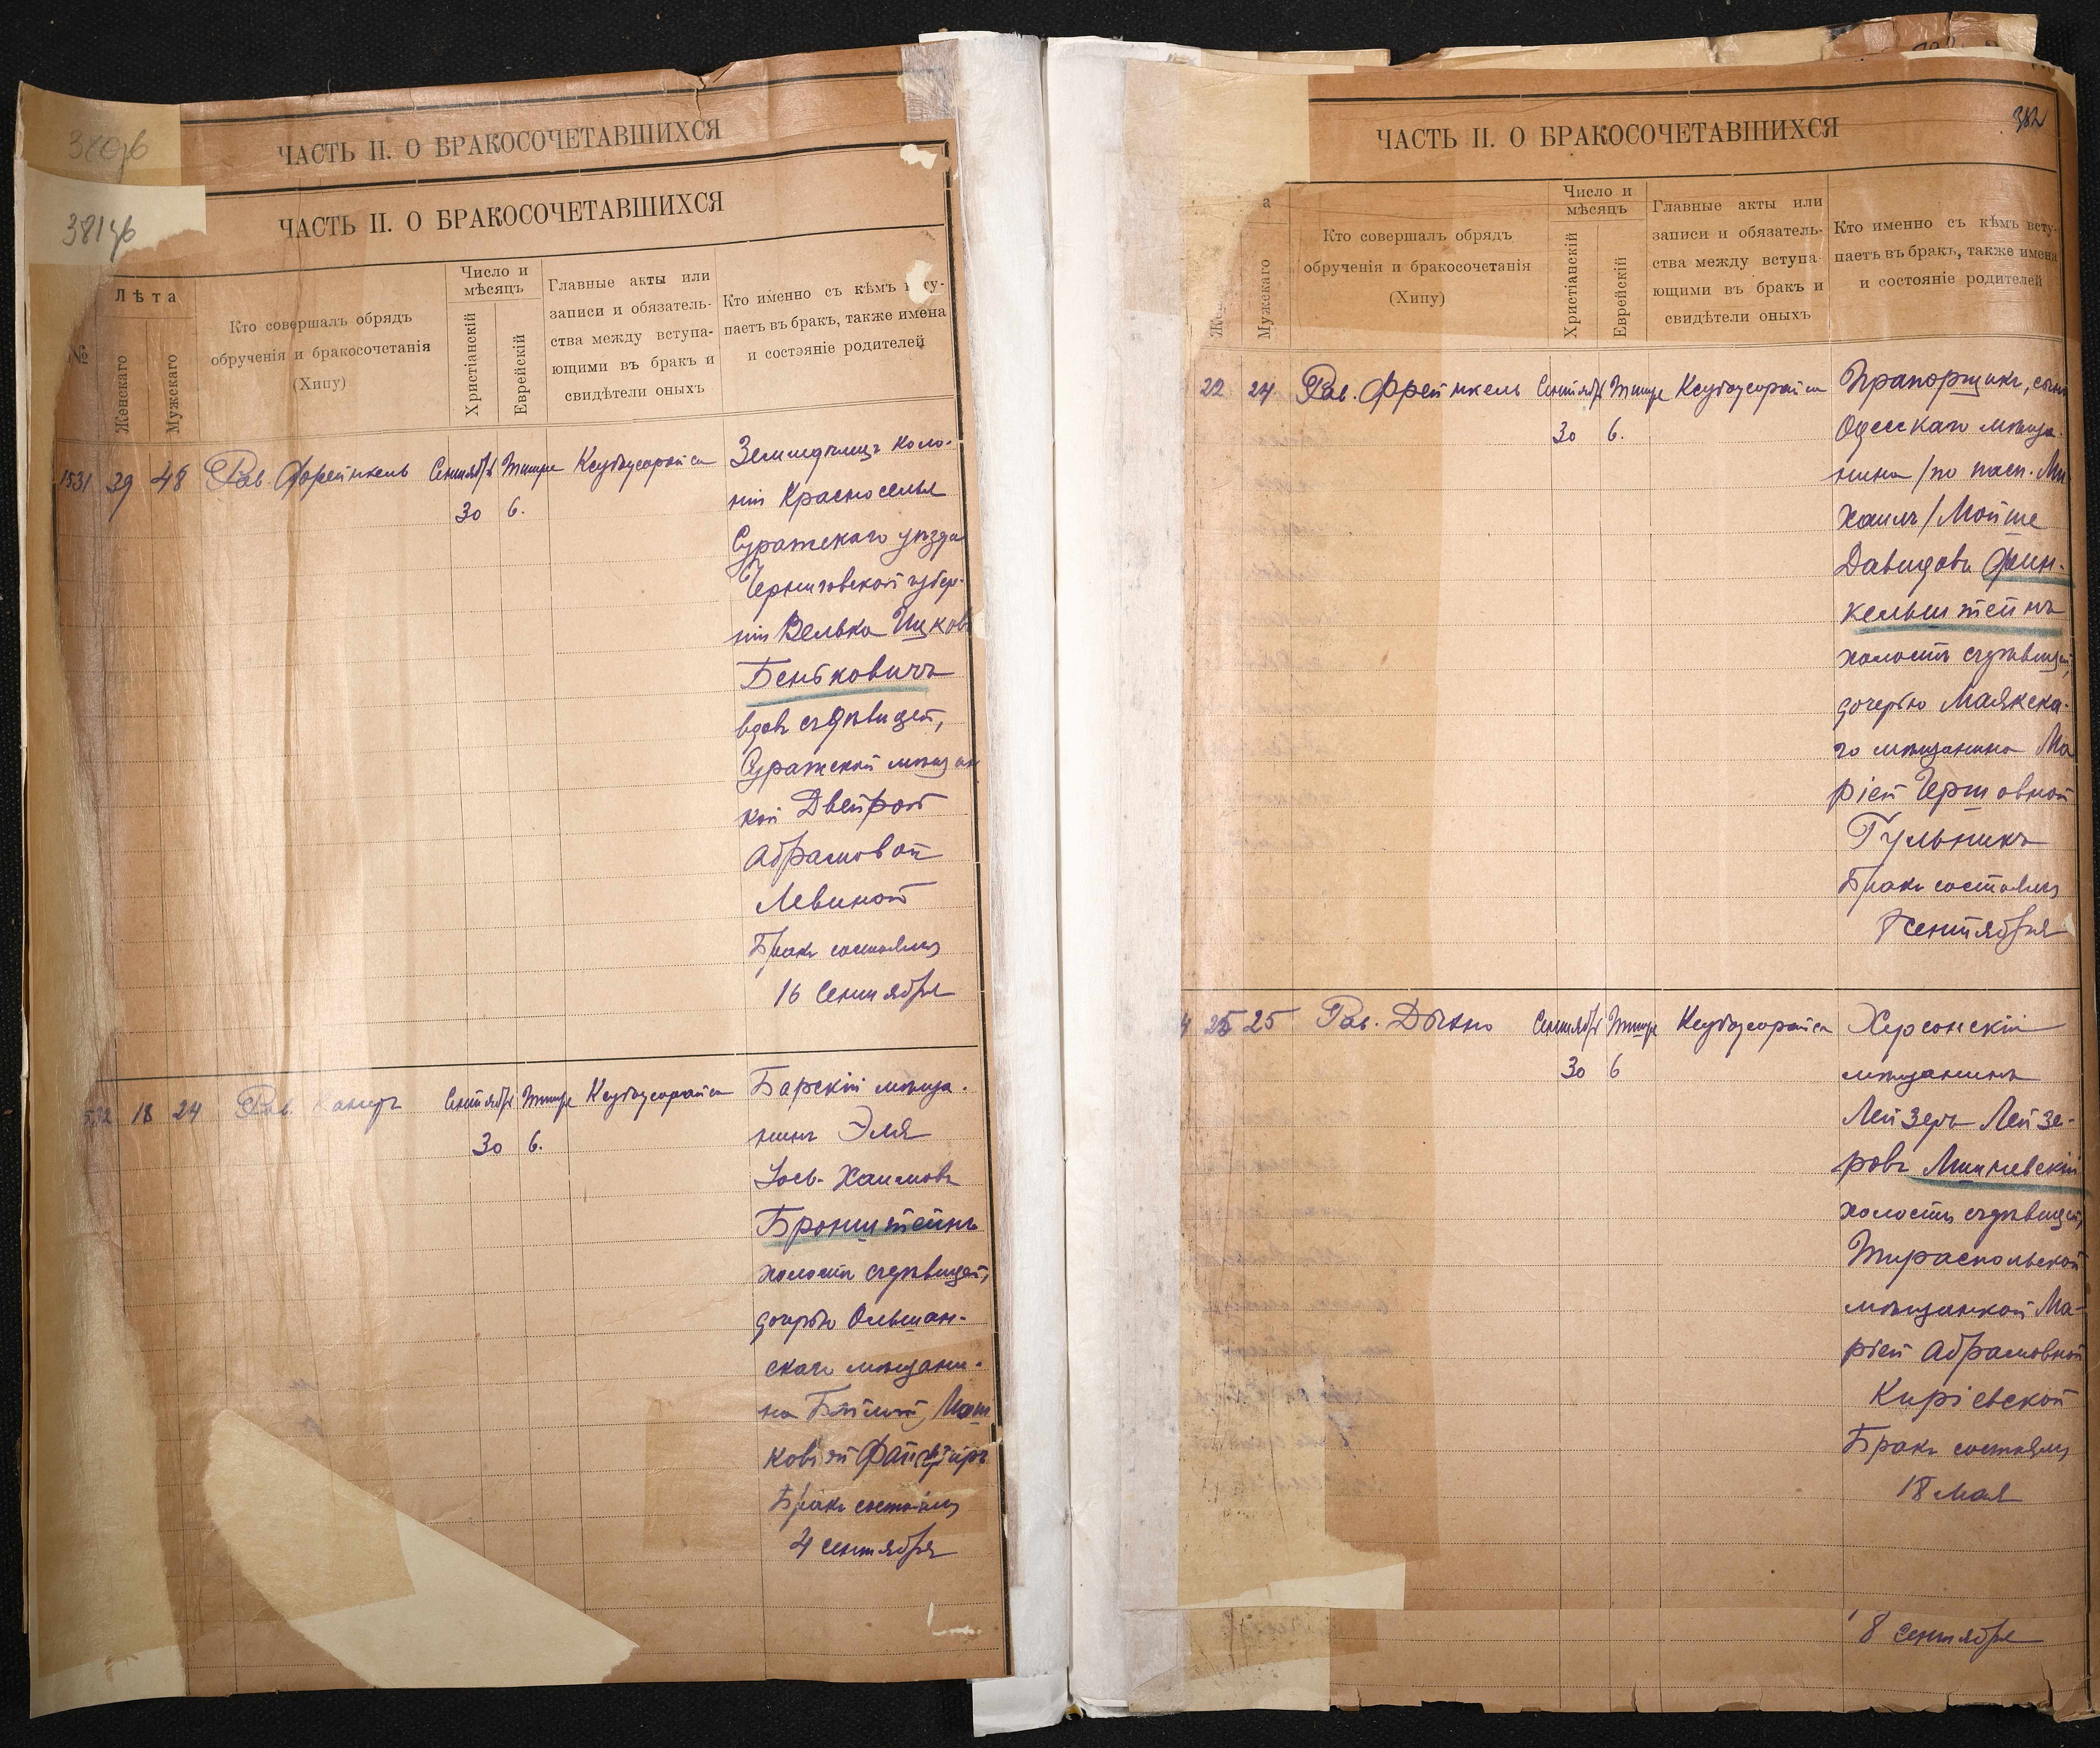 381 об
ЧАСТЬ II. О БРАКОСОЧЕТАВШИХСЯ
ЧАСТЬ II. О БРАКОСОЧЕТАВШИХСЯ
№
Лѣта
Женскаго
Мужскаго
Кто совершалъ обрядъ
обрученія и бракосочетанія
(Хипу)
Число и
мѣсяцъ
Христіанскій
Еврейскій
Главные акты или
записи и обязатель-
ства между вступа-
ющими въ бракъ и
свидѣтели оныхъ
Кто именно съ кѣмъ всту-
паетъ въ бракъ, также имена
и состояніе родителей
1531 29 48 Рав. Френкель Сентябрь Тишре Ксубусорайса
30 6.
Земледѣлецъ коло-
ніи Красноселья
Суражскаго уѣзда
Черниговской губер-
ніи Велька Ицковъ
Беньковичъ
вдовъ съ дѣвицей,
Суражской мѣщан
кой Двейрой
Абрамовой
Левиной
Бракъ состоялся
16 Сентября
532 18 24 Рав. Сентябрь Тишре Ксубусорайса
30 6.
Барскій мѣща-
нинъ Эля
Іось-Хаимовъ
Бронштейнъ
холостъ съ дѣвицей,
дочерью Ольшан-
скаго мѣщани-
на Бейлой
Бракъ состоялся
4 сентября
382
ЧАСТЬ II. О БРАКОСОЧЕТАВШИХСЯ
Мужскаго
Кто совершалъ обрядъ
обрученія и бракосочетанія
(Хипу)
Число и
мѣсяцъ
Христіанскій
Еврейскій
Главные акты или
записи и обязатель-
ства между вступа-
ющими въ бракъ и
свидѣтели оныхъ
Кто именно съ кѣмъ всту-
паетъ въ бракъ, также имена
и состояніе родителей
22 24 Рав. Френкель Сентябрь Тишре Ксубусорайса
30 6.
Прапорщикъ, сынъ
Одесскаго мѣща-
нина /по пасп. Ми
хаилъ/ Мойше
Давидовъ Фин-
кельштейнъ
холостъ съ дѣвицей,
дочерью Маякска-
го мѣщанина Ма
ріей Гершовной
Гульникъ
Бракъ состоялся
8 сентября
4 25 25 Рав. Дыхно Сентябрь Тишре Ксубусорайса
30 6
Херсонскій
мѣщанинъ
Лейзеръ Лейзе-
ровъ Мишневскій
холостъ съ дѣвицей,
Тираспольской
мѣщанкой Ма-
ріей Абрамовной
Киріевской
Бракъ состоялся
18 Мая
8 Сентября